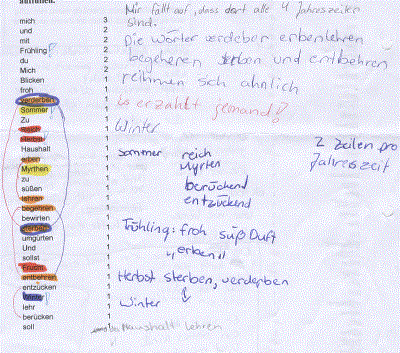 mich 3
und 2
mit 2
Frühling 2
du 2
Mich 2
Blicken 1
froh 1
verderben 1
Sommer 1
Zu 1
reich 1
sterben 1
Haushalt 1
erben 1
Myrthen 1
zu 1
süßen 1
lehren 1
begehren 1
bewirten 1
1
umgurten 1
Und 1
sollst 1
1
entbehren 1
entzücken 1
Winter 1
lehr 1
berücken 1
soll 1
Mir fällt auf, dass dort alle 4 Jahreszeiten
sind.
Die Wörter verderben erben lehren
begeheren sterben und entbehren
reihmen sich ähnlich
es erzählt jemand!
Winter
Sommer reich
Myrten
berückend
entzückend
2 Zeilen pro
Jahreszeit
Frühling: froh süß Duft
"erben"
Herbst sterben, verderben
Winter
Haushalt lehren